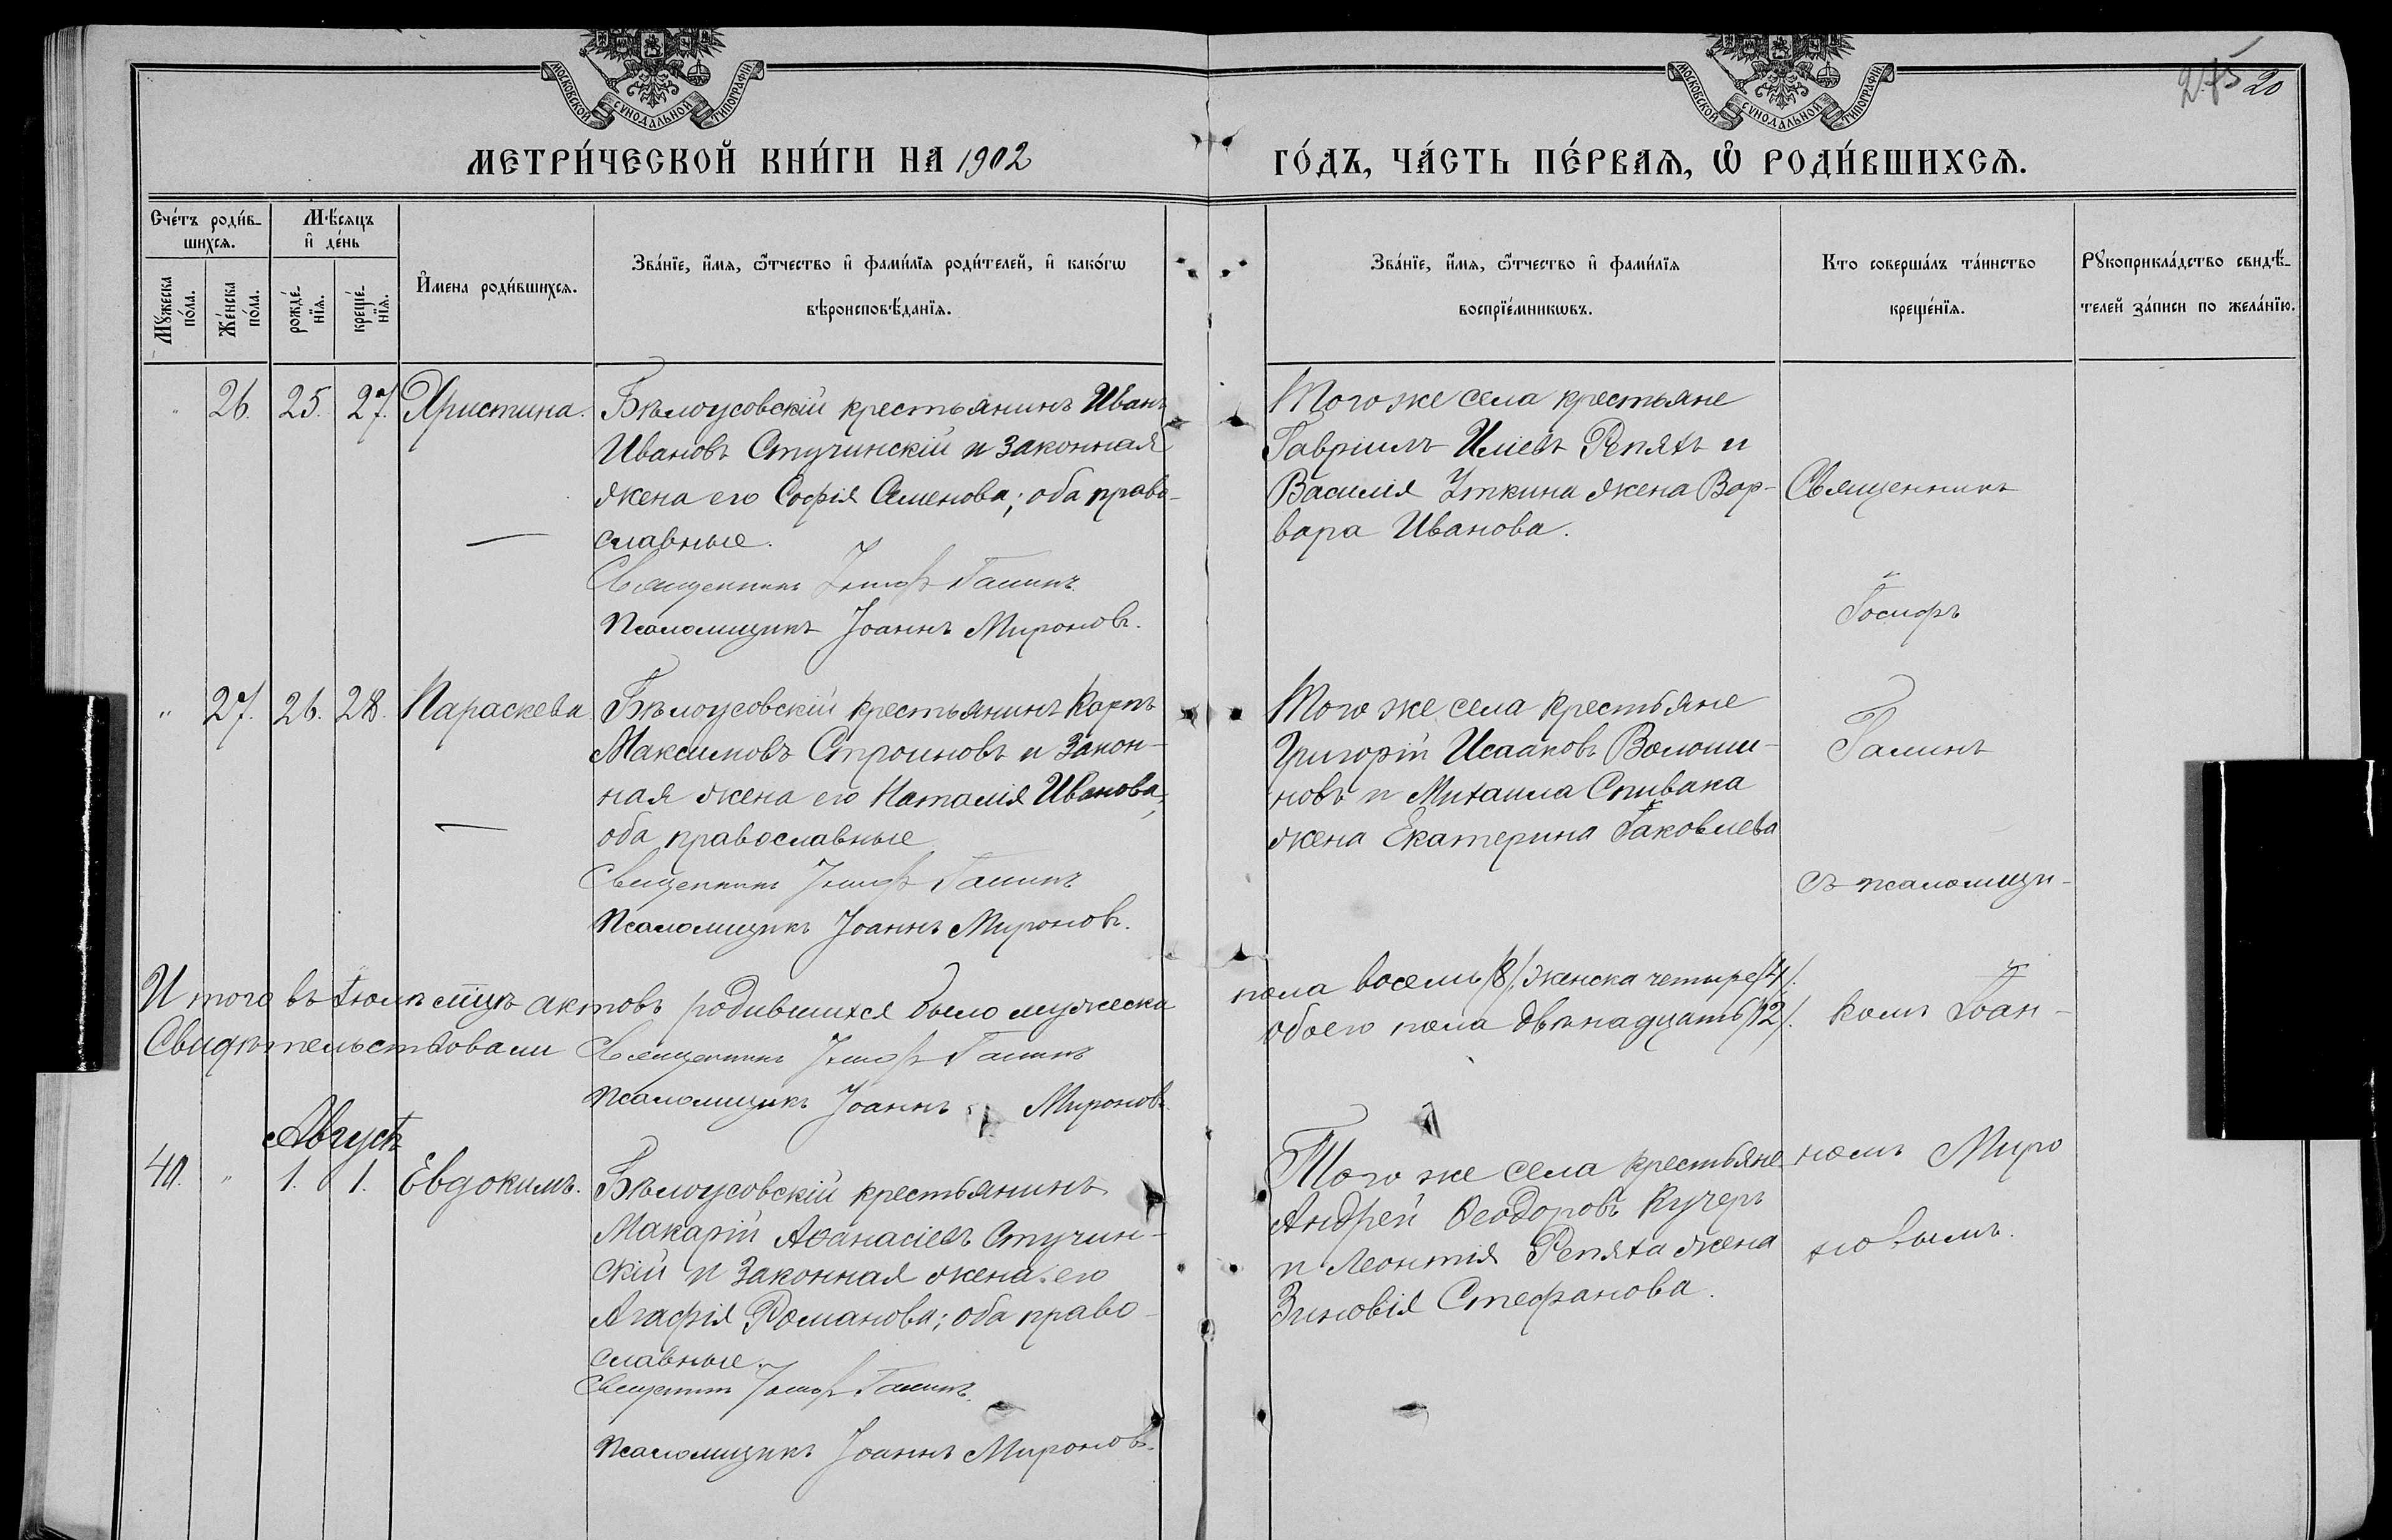 МОСКОВСКОЙ СѴНОДАЛЬНОЙ ТИПОГРАФІИ
МОСКОВСКОЙ СѴНОДАЛЬНОЙ ТИПОГРАФІИ
275 20
МЕТРИ́ЧЕСКОЙ КНИ́ГИ НА 1902
ГО́ДЪ, ЧА́СТЬ ПЕ́РВАѦ, Ѡ҆ РОДИ́ВШИХСѦ.
Сче́тъ роди́в-
шихсѧ.
Мѣ́сѧцъ
и҆ де́нь
Мꙋ́жеска
по́ла.
Же́нска
по́ла.
рожде́-
нїѧ.
креще́-
нїѧ.
И҆мена роди́вшихсѧ.
Зва́нїе, и҆́мѧ, ѻ҆́тчество и҆ фами́лїѧ роди́телей, и҆ како́гѡ
вѣроисповѣ́данїѧ.
Зва́нїе, и҆́мѧ, ѻ҆́тчество и҆ фами́лїѧ
воспрїе́мникѡвъ.
Кто соверша́лъ та́инство
креще́нїѧ.
Рꙋкоприкла́дство свидѣ́-
телей за́писи по жела́нїю.
" 26. 25. 27. Христина.
Бѣлоусовскій крестьянинъ Иванъ
Ивановъ Стучинскій и законная
жена его Софія Семенова; оба право-
славные.
Священникъ Іосифъ Галинъ
Псаломщикъ Іоаннъ Мироновъ.
Того же села крестьяне
Гавріилъ Иліевъ Репяхъ и
Василія Уткина жена Вар-
вара Иванова.
Священникъ
Іосифъ
" 27. 26. 28. Параскева
Бѣлоусовскій крестьянинъ Карпъ
Максимовъ Строиновъ и закон-
ная жена его Наталія Иванова,
оба православные
Священникъ Іосифъ Галинъ
Псаломщикъ Іоаннъ Мироновъ.
Того же села крестьяне
Григорій Исааковъ Волоши-
новъ и Михаила Спивака
жена Екатерина Іаковлева
Галинъ
съ псаломщи-
Итого въ Іюлѣ м͠цѣ актовъ родившихся было мужеска
пола восемь /8/, женска четыре /4/.
обоего пола двѣнадцать /12/.
комъ Іоан-
Свидѣтельствовали Священникъ Іосифъ Галинъ
Псаломщикъ Іоаннъ Мироновъ.
Августъ
40. " 1. 1. Евдокимъ.
Бѣлоусовскій крестьянинъ
Макарій Аѳанасіевъ Стучин-
скій и законная жена его
Агафія Романова; оба право-
славные.
Священникъ Іосифъ Галинъ.
Псаломщикъ Іоаннъ Мироновъ.
Того же села крестьяне
Андрей Ѳеодоровъ Кучеръ
и Леонтія Репяха жена
Зиновія Стефанова.
номъ Миро
новымъ.